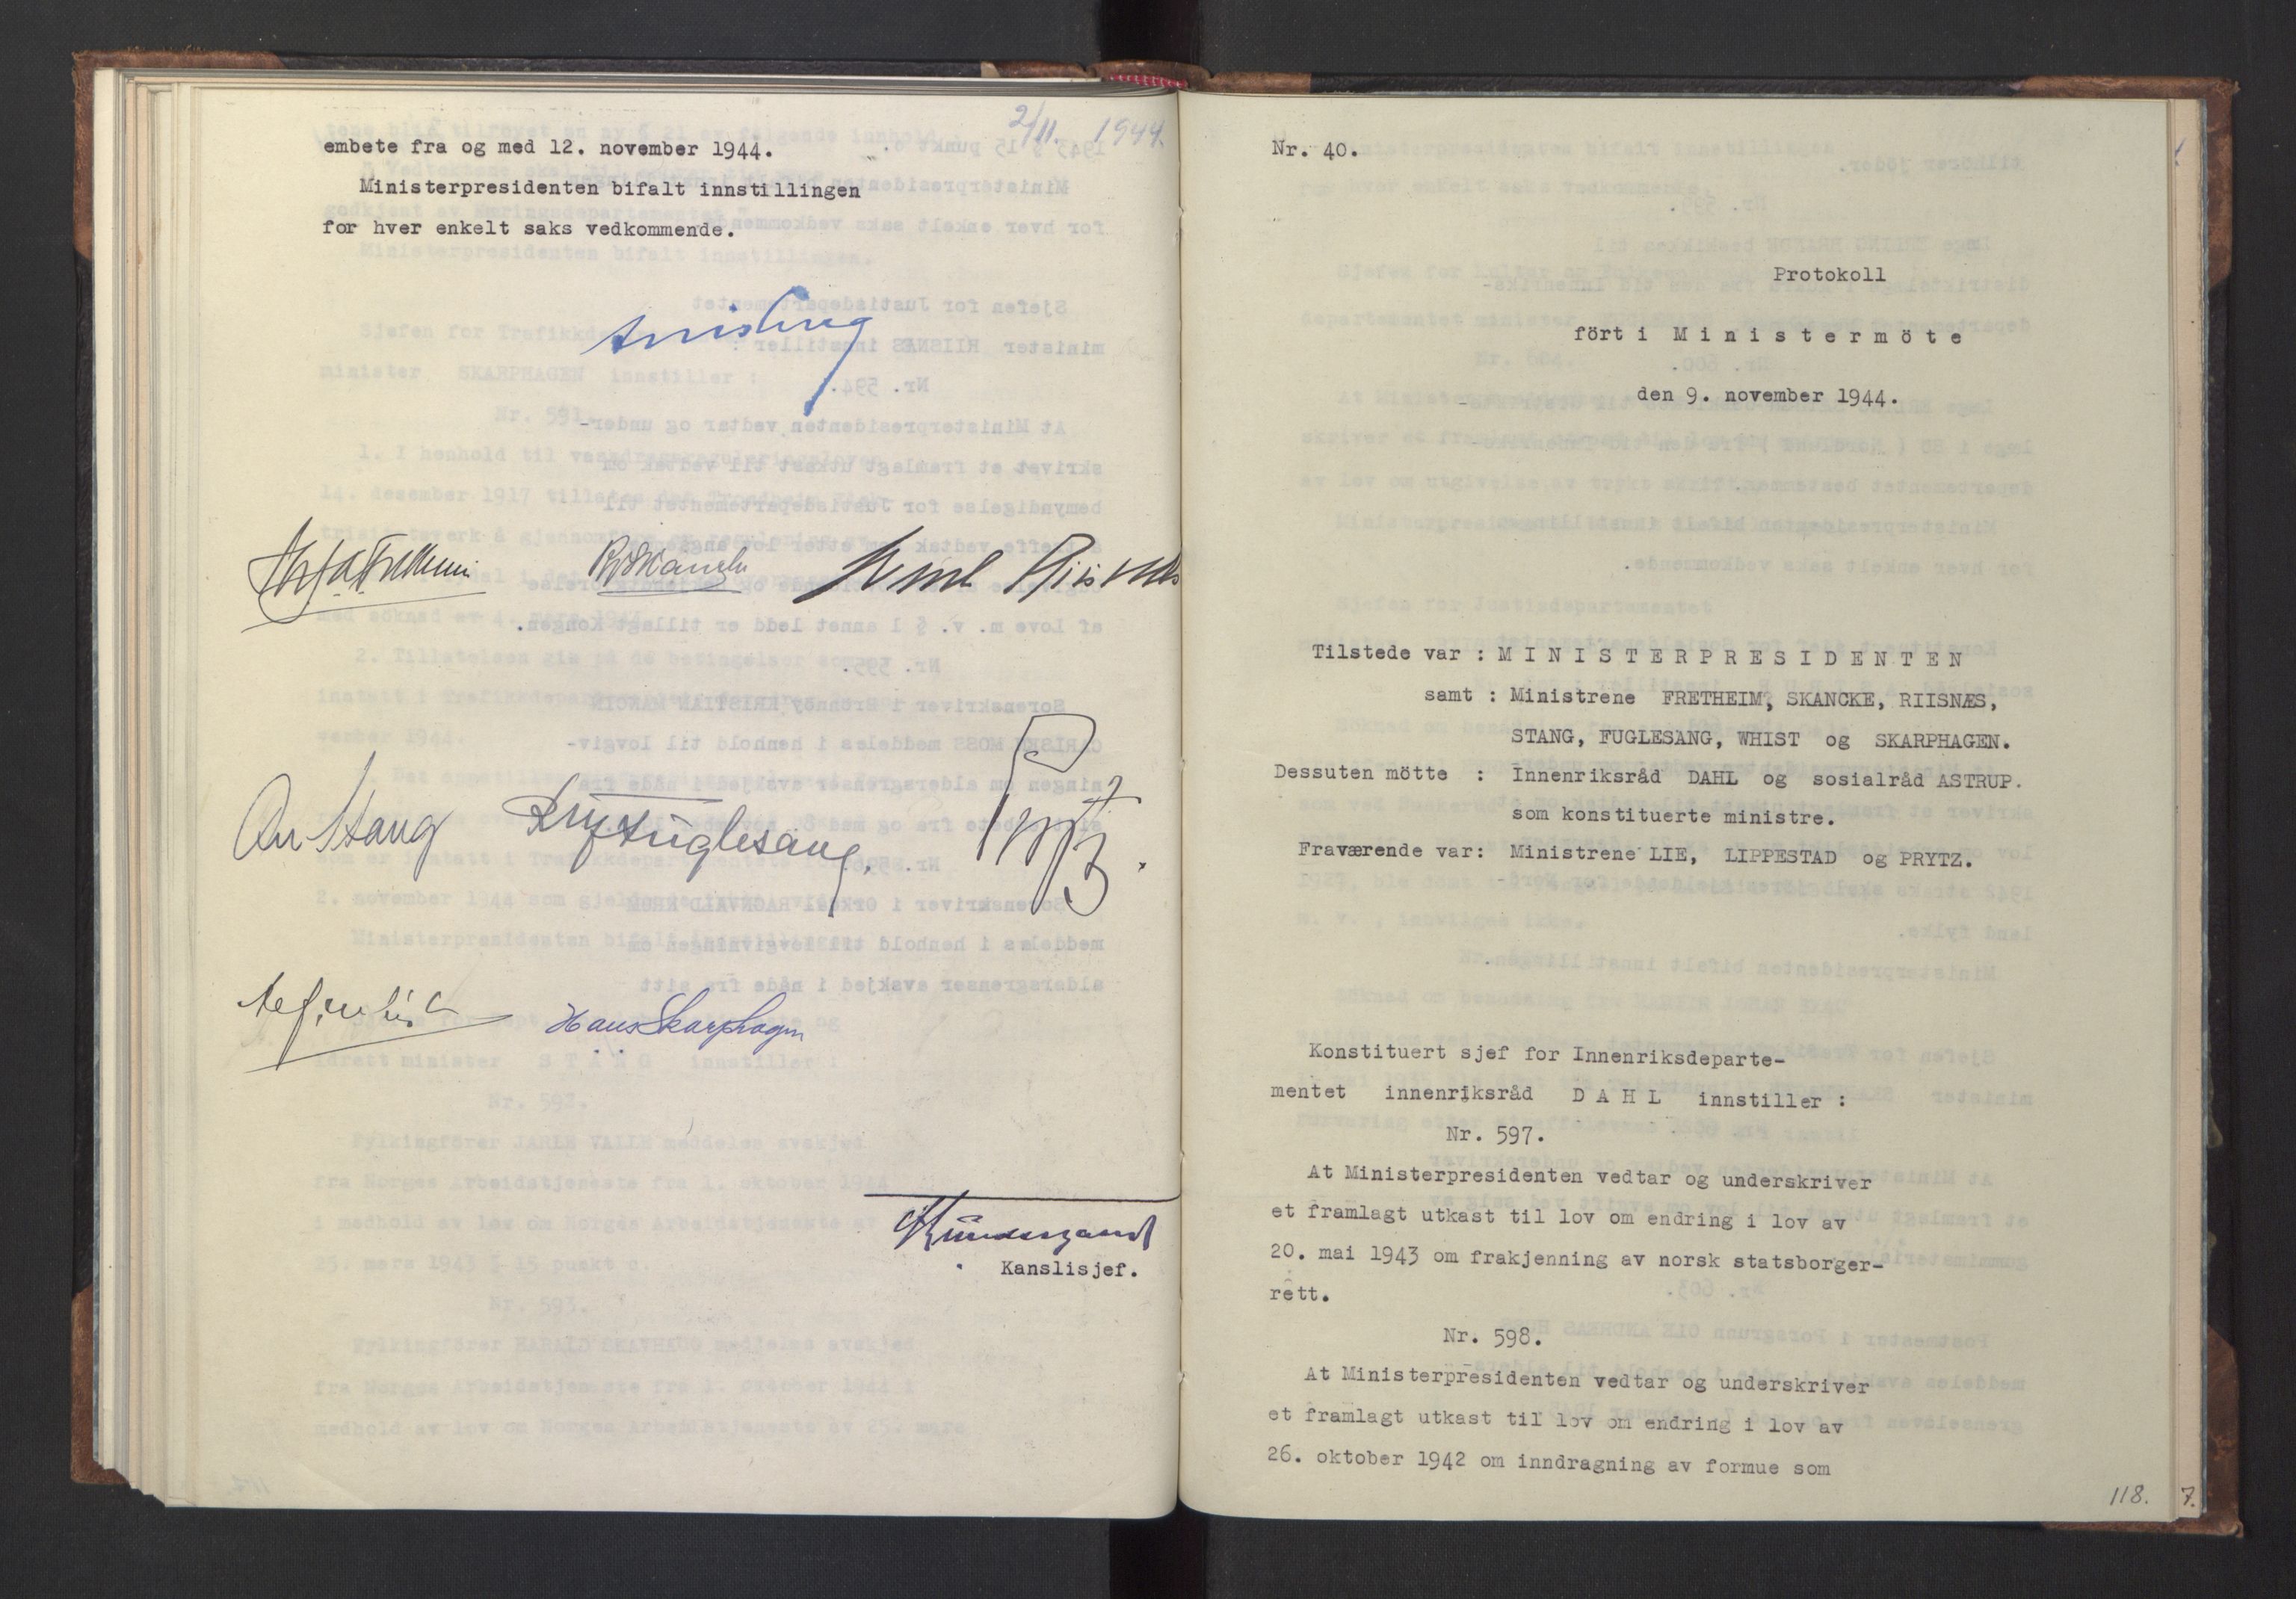 2/11. 1944.
embete fra og med 12. november 1944.
Ministerpresidenten bifalt innstillingen
for hver enkelt saks vedkommende.
Quisling
RSkancke Sverre Riisnæs
Stang Fuglesang
Hans Skarphagen
Kanslisjef.
Nr. 40.
Protokoll
fört i Ministermöte
den 9. november 1944.
Tilstede var : MINISTERPRESIDENTEN
samt : Ministrene FRETHEIM, SKANCKE, RIISNÆS,
STANG, FUGLESANG, WHIST og SKARPHAGEN.
Dessuten mötte : Innenriksråd DAHL og sosialråd ASTRUP.
som konstituerte ministre.
Fraværende var: Ministrene LIE, LIPPESTAD og PRYTZ.
Konstituert sjef for Innenriksdeparte-
mentet innenriksråd DAHL innstiller :
Nr. 597.
At Ministerpresidenten vedtar og underskriver
et framlagt utkast til lov om endring i lov av
20. mai 1943 om frakjenning av norsk statsborger-
rett.
Nr. 598.
At Ministerpresidenten vedtar og underskriver
et framlagt utkast til lov om endring i lov av
26. oktober 1942 om inndragning av formue som
118. 7.